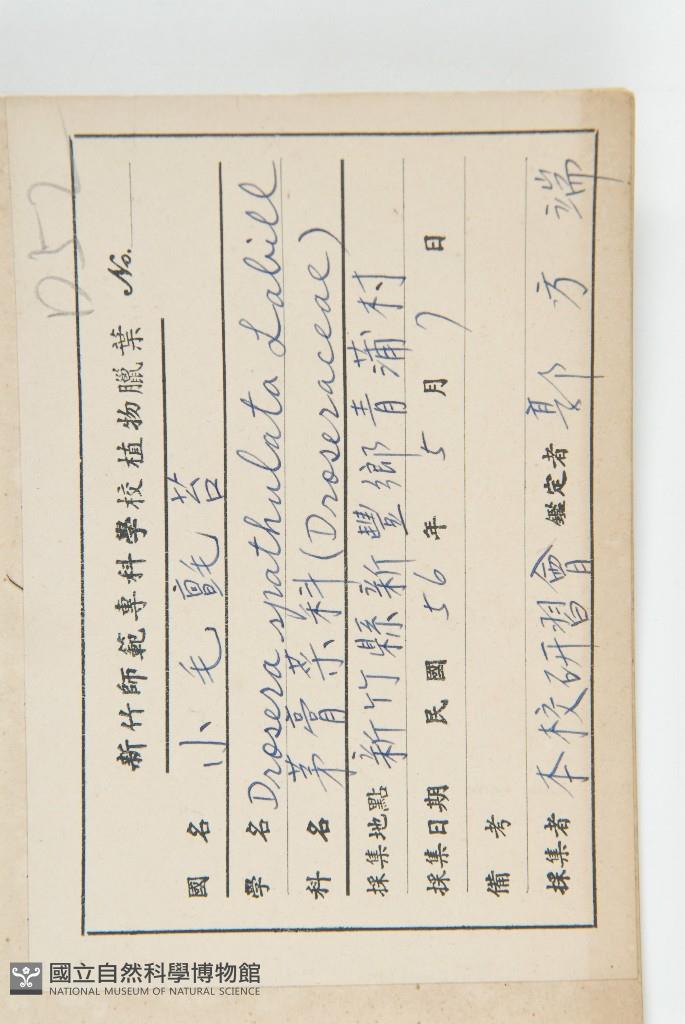 D52
新竹師範專科學校植物臘葉 No.
國名 小毛氈苔
學名 Drosera spathulata Labill
科名 茅膏菜科(Droseraceae)
採集地點 新竹縣新豐鄉青蒲村
採集日期 民國 56 年 5 月 7 日
備考
採集者 本校研習會 鑑定者 郭方端
國立自然科學博物館
NATIONAL MUSEUM OF NATURAL SCIENCE